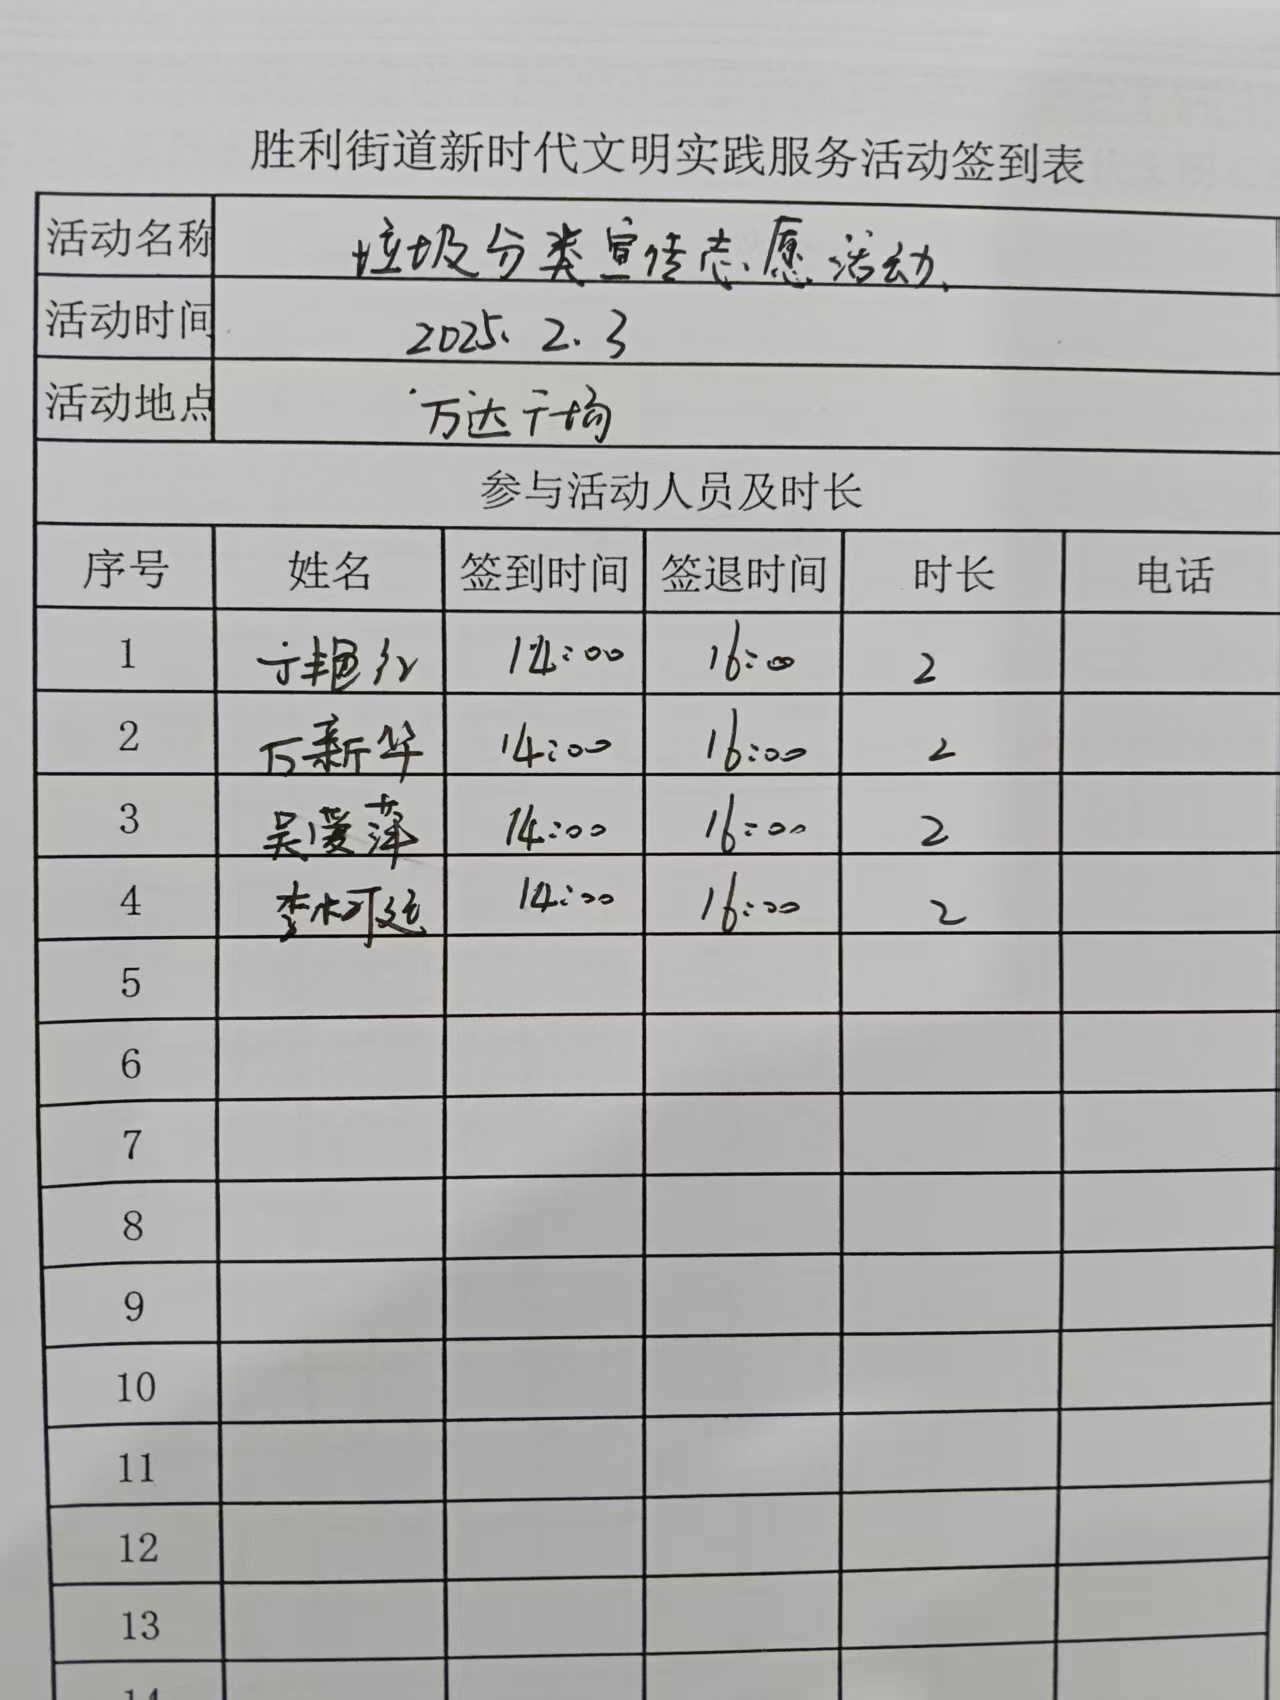 胜利街道新时代文明实践服务活动签到表
活动名称 垃圾分类宣传志愿活动
活动时间 2025.2.3
活动地点 万达广场
参与活动人员及时长
序号 姓名 签到时间 签退时间 时长 电话
1 方艳红 14:00 16:00 2
2 万新华 14:00 16:00 2
3 吴爱萍 14:00 16:00 2
4 14:00 16:00 2
5
6
7
8
9
10
11
12
13
14